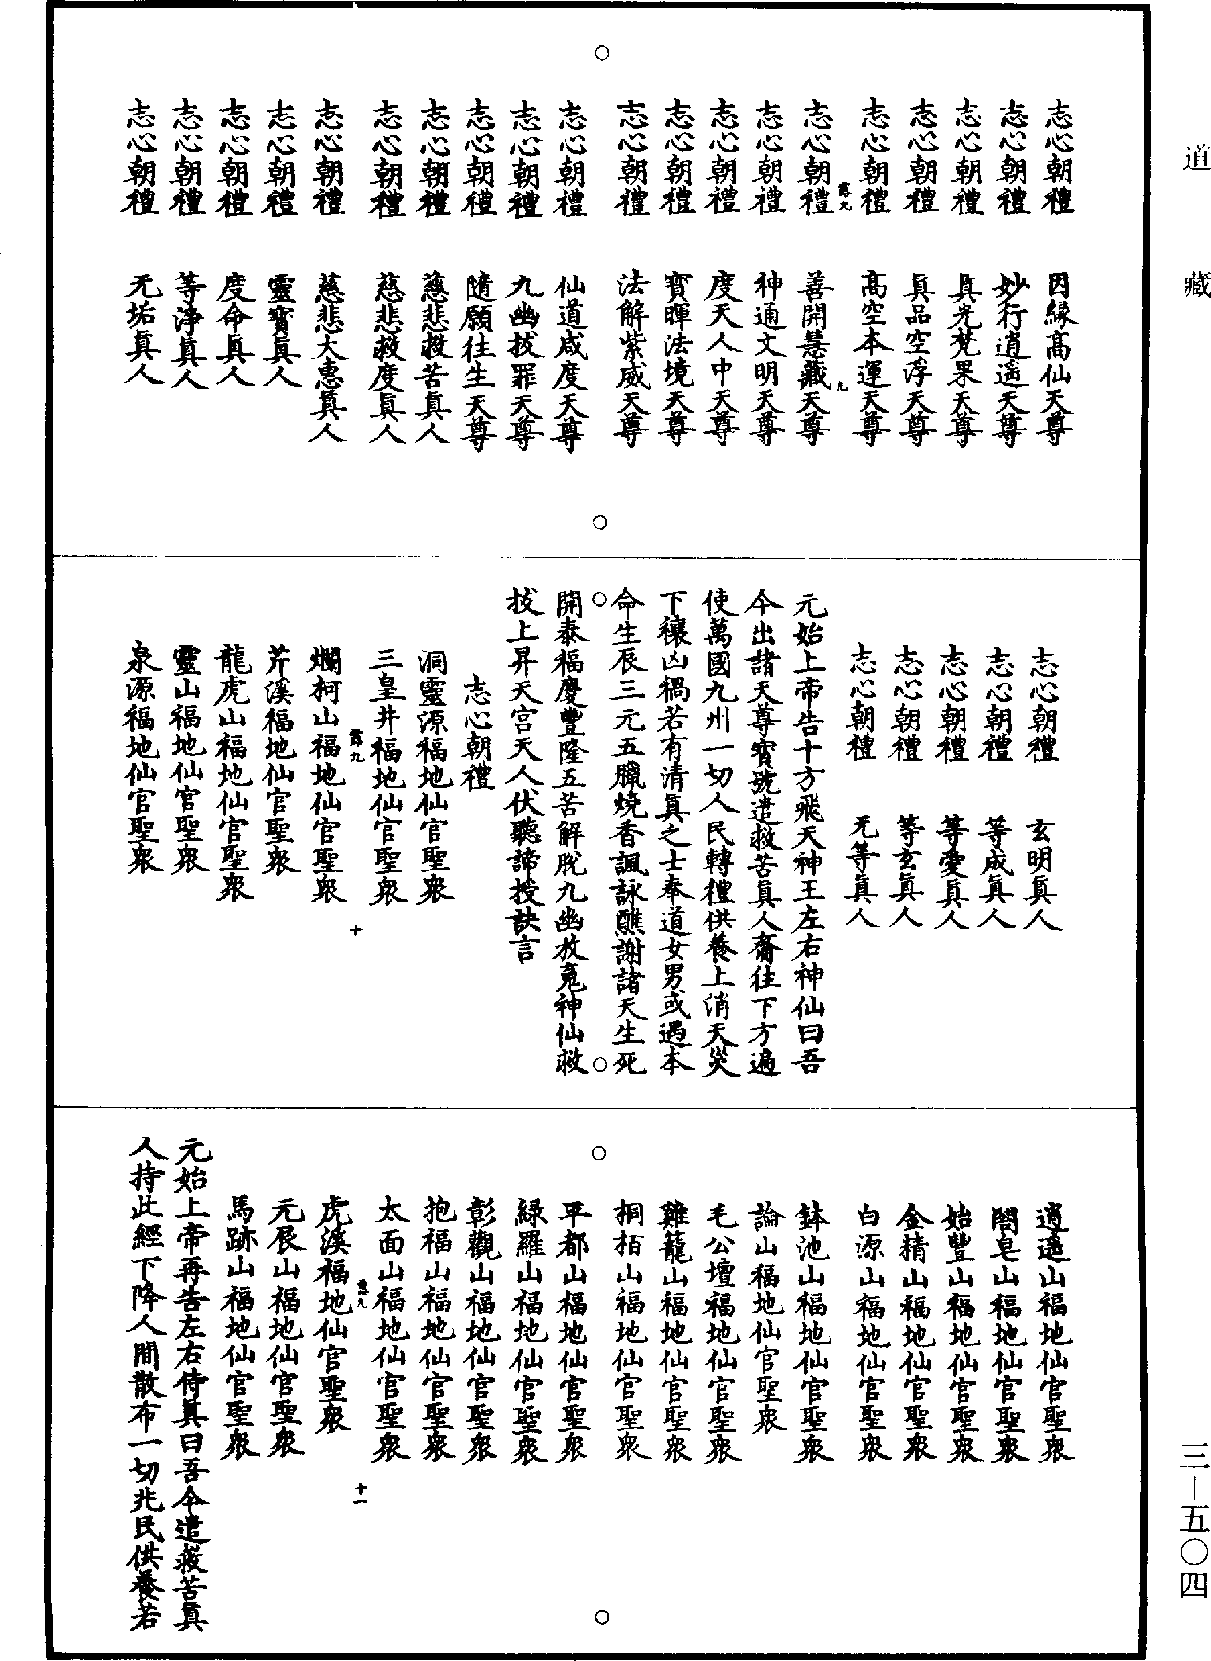 道藏
志心朝禮 因緣高仙天尊
志心朝禮 妙行逍遙天尊
志心朝禮 真光梵果天尊
志心朝禮 真品空浮天尊
志心朝禮 高空本運天尊
露九 九
志心朝禮 善開慧藏天尊
志心朝禮 神通文明天尊
志心朝禮 度天人中天尊
志心朝禮 寶暉法境天尊
志心朝禮 法解紫威天尊
志心朝禮 仙道咸度天尊
志心朝禮 九幽拔罪天尊
志心朝禮 隨願往生天尊
志心朝禮 慈悲救苦真人
志心朝禮 慈悲救度真人
志心朝禮 慈悲大惠真人
志心朝禮 靈寶真人
志心朝禮 度命真人
志心朝禮 等淨真人
志心朝禮 无垢真人
志心朝禮 玄明真人
志心朝禮 等成真人
志心朝禮 等愛真人
志心朝禮 等玄真人
志心朝禮 无等真人
元始上帝告十方飛天神王左右神仙曰吾
今出諸天尊寶號遣救苦真人齎往下方遍
使萬國九州一切人民轉禮供養上消天災
下禳凶禍若有清真之士奉道女男或遇本
命生辰三元五臘燒香諷詠醮謝諸天生死
開泰福慶豐隆五苦解脫九幽放䰟神仙救
拔上昇天宮天人伏聽諦授訣言
志心朝禮
洞靈源福地仙官聖衆
三皇井福地仙官聖衆
露九 十
爛柯山福地仙官聖衆
芹溪福地仙官聖衆
龍虎山福地仙官聖衆
靈山福地仙官聖衆
泉源福地仙官聖衆
逍遙山福地仙官聖衆
閤皂山福地仙官聖衆
始豐山福地仙官聖衆
金精山福地仙官聖衆
白源山福地仙官聖衆
鉢池山福地仙官聖衆
論山福地仙官聖衆
毛公壇福地仙官聖衆
雞籠山福地仙官聖衆
桐栢山福地仙官聖衆
平都山福地仙官聖衆
綠羅山福地仙官聖衆
彰觀山福地仙官聖衆
抱福山福地仙官聖衆
太面山福地仙官聖衆
露九 十一
虎溪福地仙官聖衆
元辰山福地仙官聖衆
馬跡山福地仙官聖衆
元始上帝再告左右侍真曰吾今遣救苦真
人持此經下降人間散布一切兆民供養若
三—五〇四